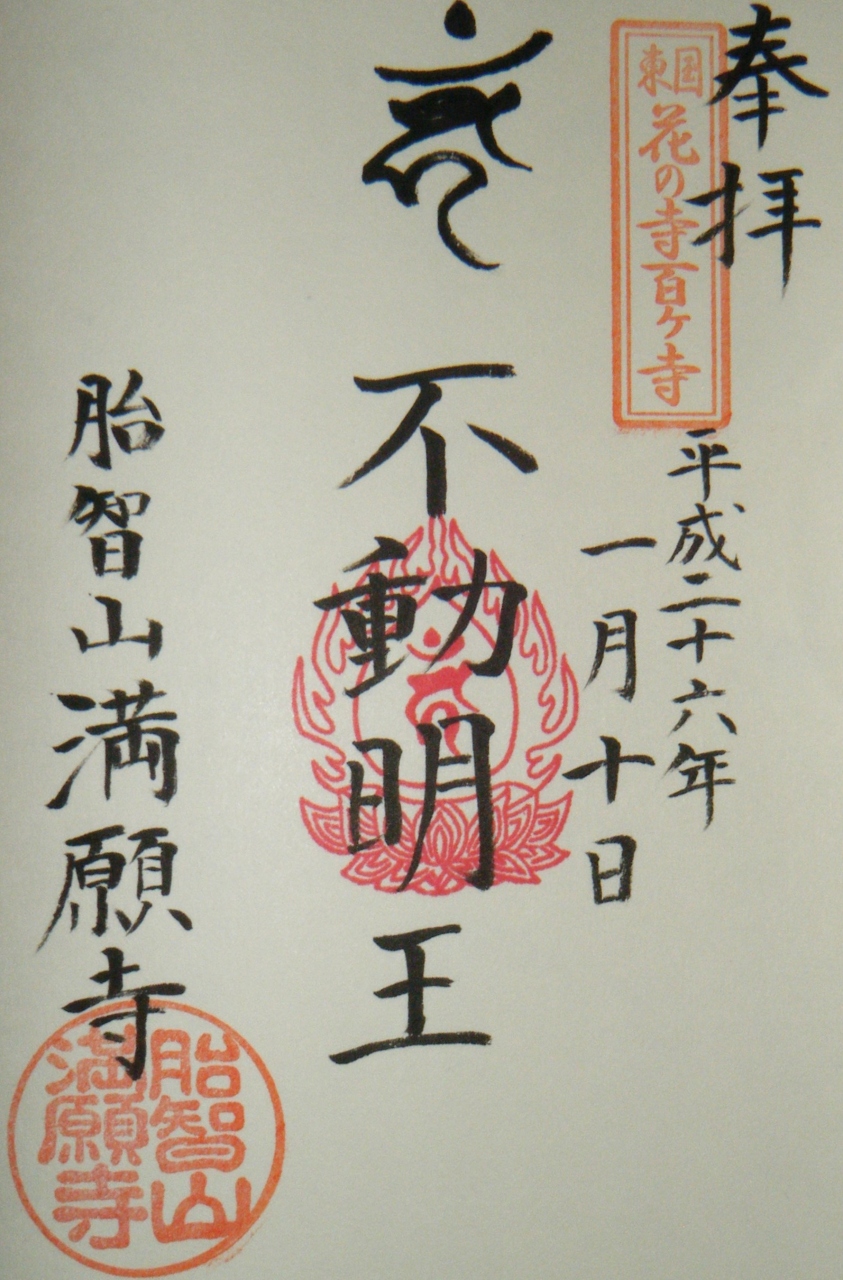 奉拝
東国花の寺百ケ寺
平成二十六年
一月十日
不動明王
胎智山満願寺
胎智山
満願寺